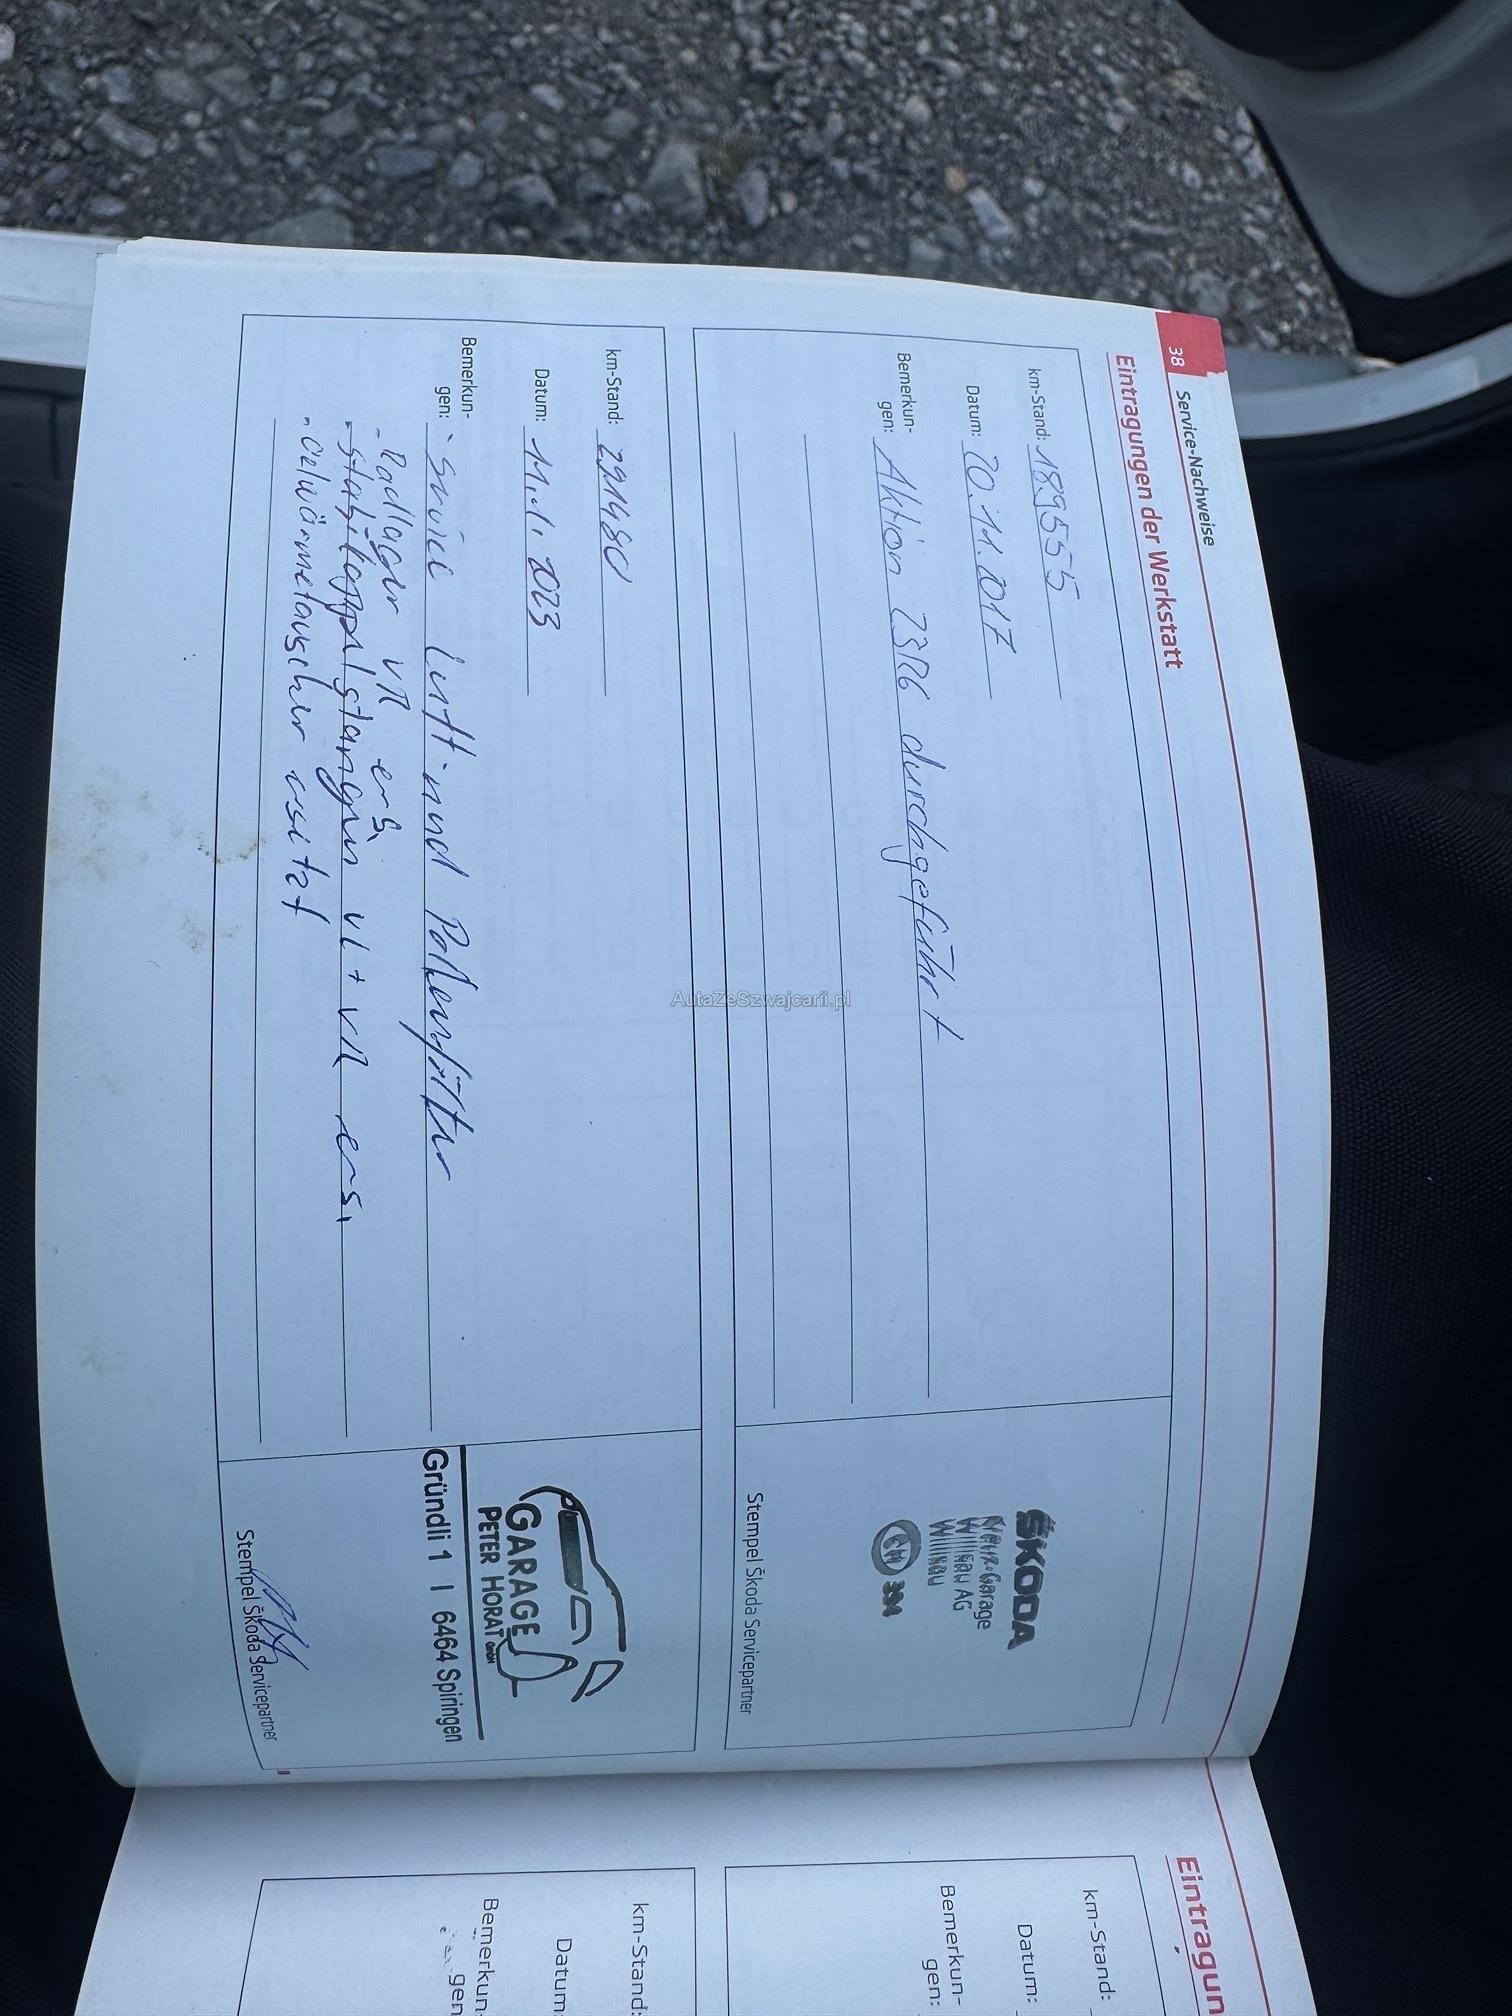 38 Service-Nachweise
Eintragungen der Werkstatt
km-Stand: 189555
Datum: 20.11.2017
Bemerkun-
gen: Aktion 23R6 durchgeführt
ŠKODA
Garage
AG
CH 394
Stempel Škoda Servicepartner
km-Stand: 291480
Datum: 11.1.2023
Bemerkun-
gen: - Service Luft- und Pollenfilter
- Radlager VR ers.
- Stabikoppelstangen VL + VR ers.
- Oelwärmetauscher ersetzt
GARAGE
PETER HORAT GmbH
Gründli 1 | 6464 Spiringen
Stempel Škoda Servicepartner
AutaZeSzwajcarii.pl
Eintragun
km-Stand:
Datum:
Bemerkun-
gen:
km-Stand:
Datum
Bemerkun-
gen